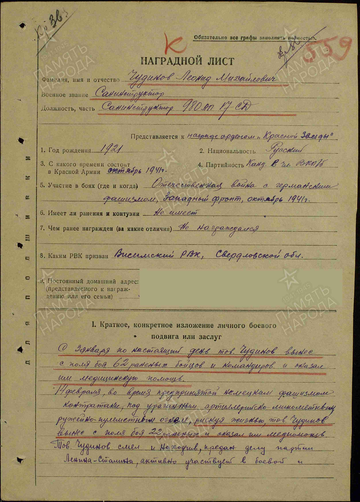 Обязательно все графы
К
559
НАГРАДНОЙ ЛИСТ
Фамилия, имя и отчество Чудинов Леонид Михайлович
Военное звание Санинструктор
Должность, часть Санинструктор 980 сп 17 СД
Представляется к награде орденом „Красной Звезды“
1. Год рождения 1921
2. Национальность Русский
3. С какого времени состоит
в Красной Армии октябрь 1941г.
4. Партийность Канд. в чл. ВКП/б
5. Участие в боях (где и когда) Отечественная война с германским
фашизмом, Западный фронт, октябрь 1941г.
6. Имеет ли ранения и контузии Не имеет
7. Чем ранее награжден (за какие отличия) Не награждался
8. Каким РВК призван Висимский РВК, Свердловской обл.
9. Постоянный домашний адрес
(представляемого к награж-
дению или его семьи)
I. Краткое, конкретное изложение личного боевого
подвига или заслуг
С января по настоящий день тов Чудинов вынес
с поля боя 62 раненых бойцов и командиров и оказал
им медицинскую помощь.
февраля, во время предпринятой немецкими фашистами
контратаки, под артиллерийско минометным
ружейно-пулеметным огнем, рискуя тов Чудинов
вынес с поля боя 22 и оказал им медпомощь
Тов Чудинов смел и находчив, предан делу партии
Ленина-Сталина, активно участвует в боевой и
ПАМЯТЬ НАРОДА